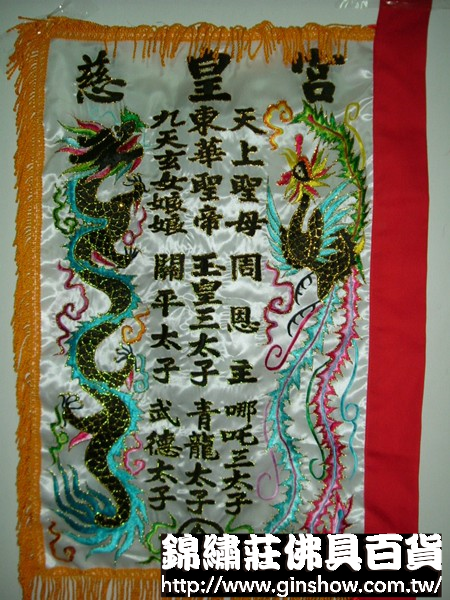 慈皇宮
天上聖母 周恩主 哪吒三太子
東華聖帝 玉皇三太子 青龍太子
九天玄女娘娘 關平太子 武德太子
錦繡莊佛具百貨
http://www.ginshow.com.tw/